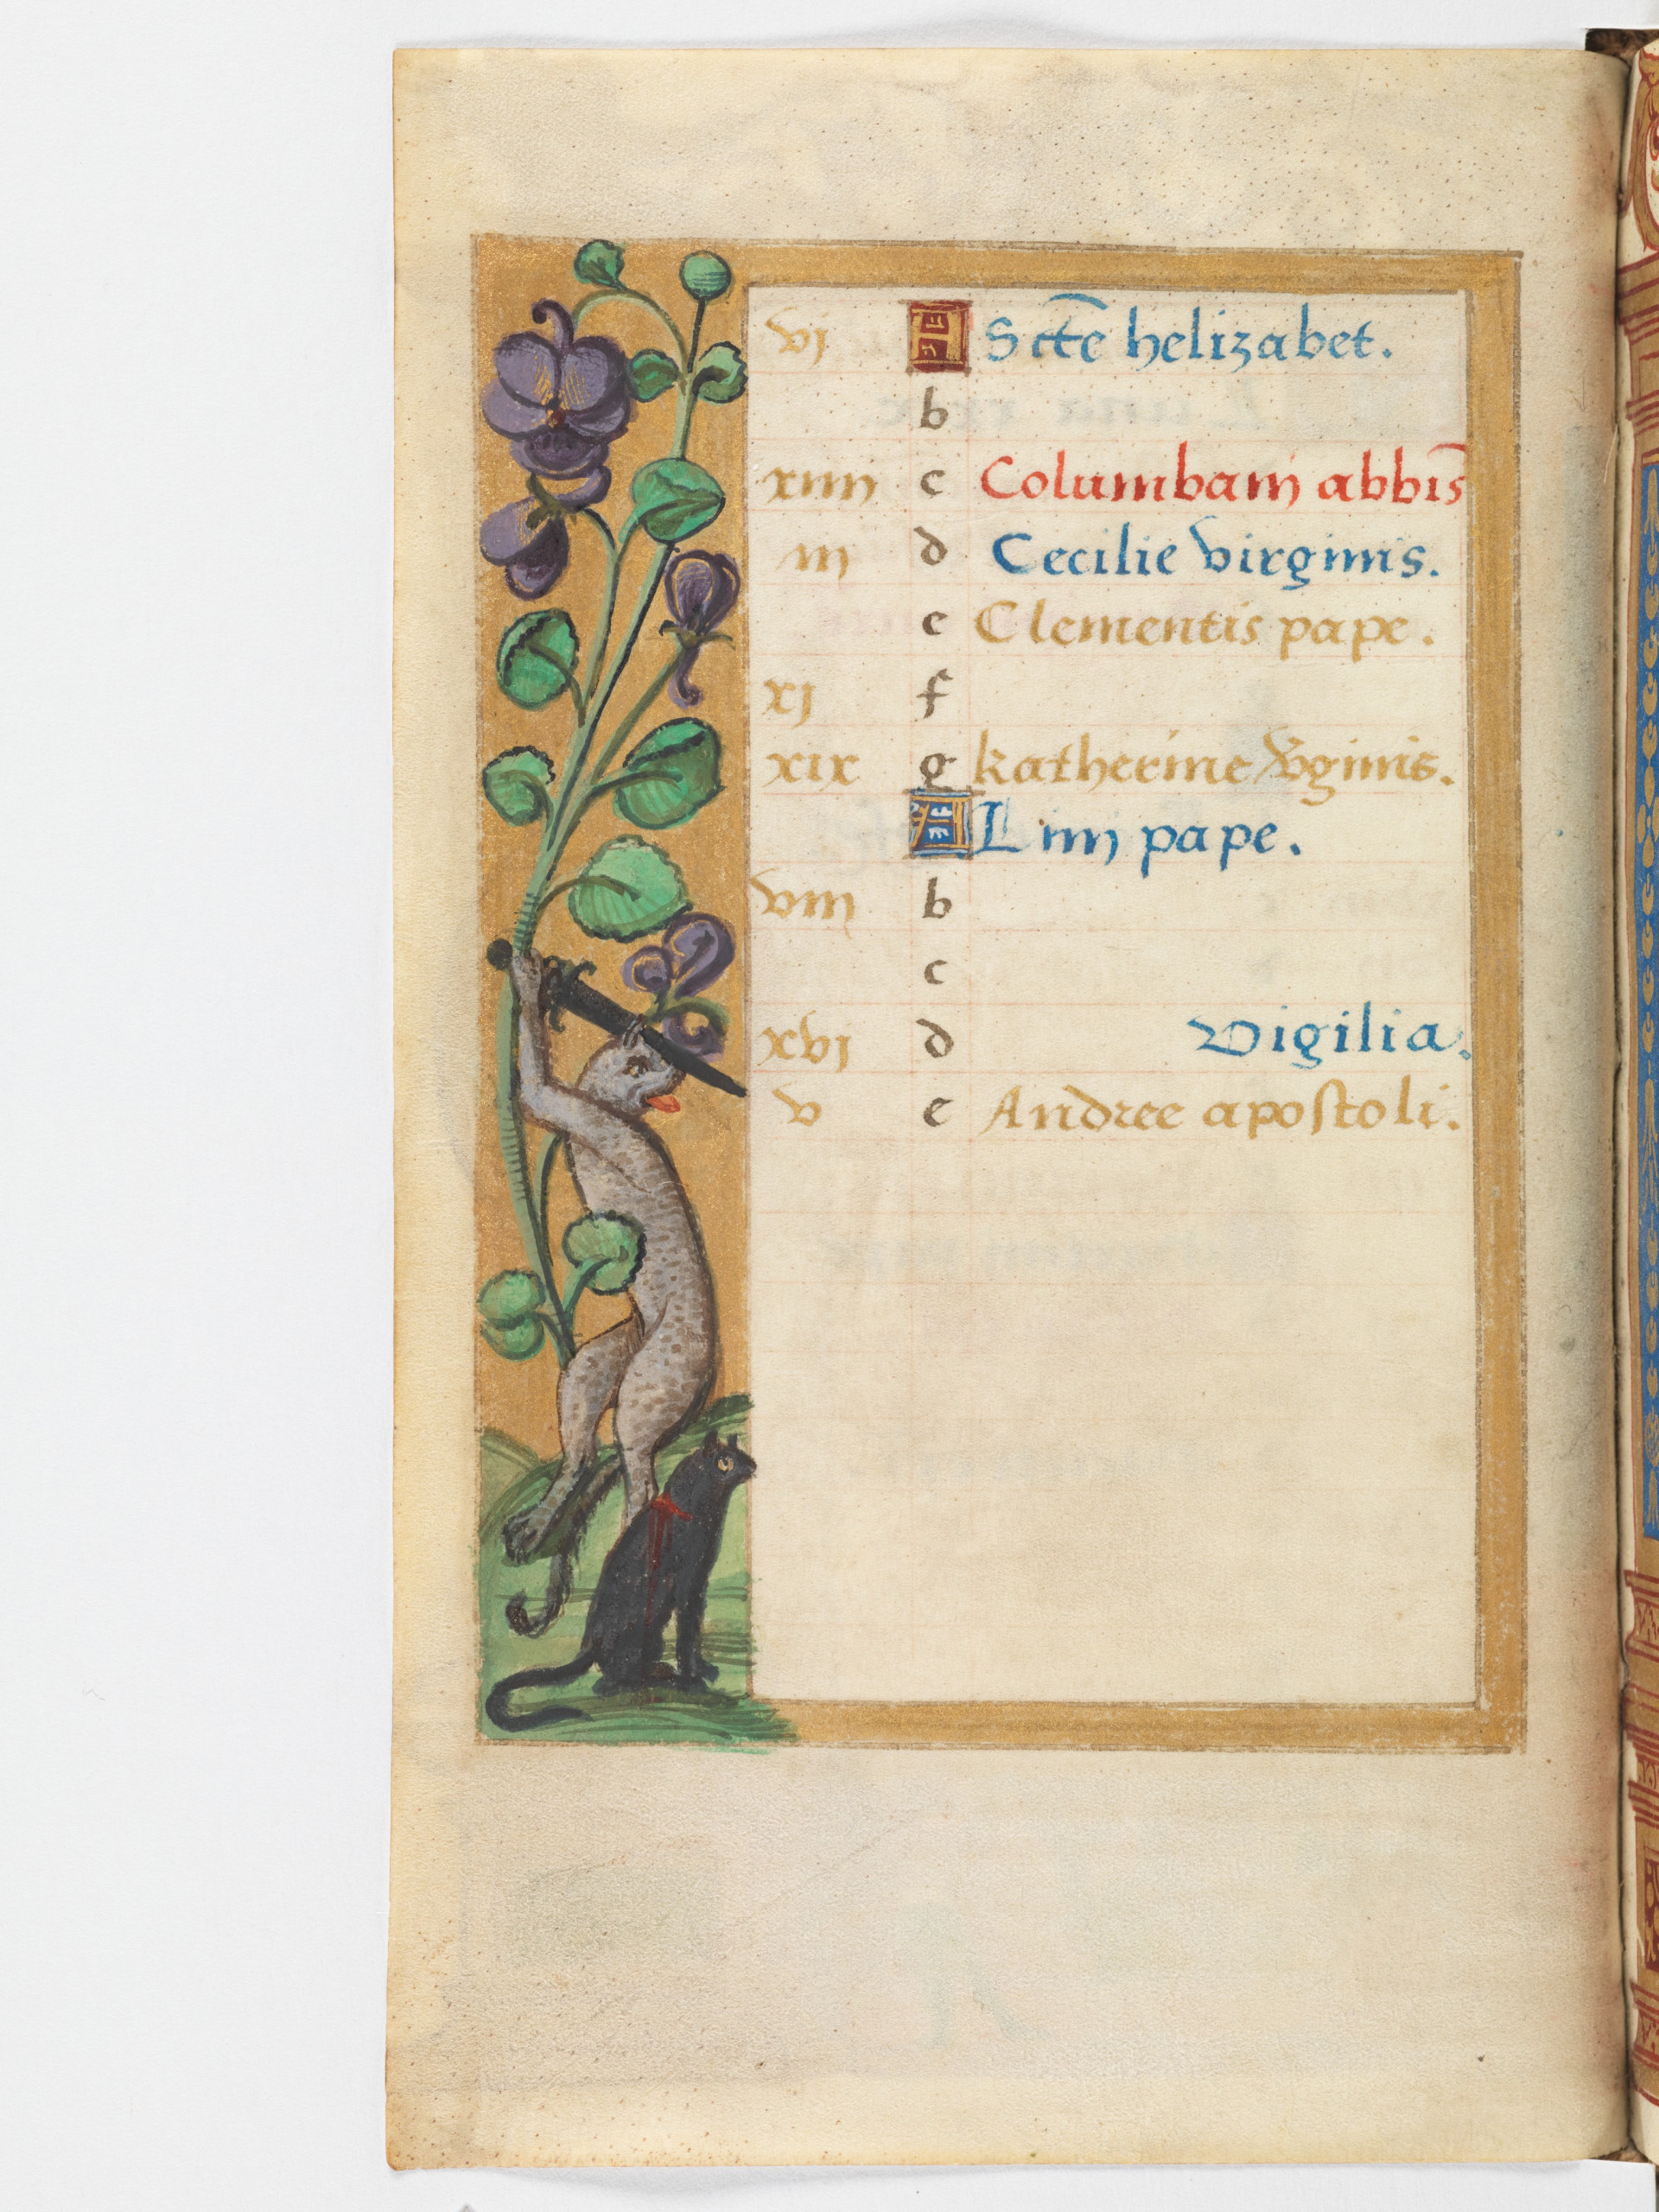 vj A Scte helizabet.
b
xiiij c Columbanj abbis
iij d Cecilie virginis.
e Clementis pape.
xj f
xix g katherine vginis.
A Linj pape.
viij b
c
xvj d Vigilia.
v e Andree apostoli.